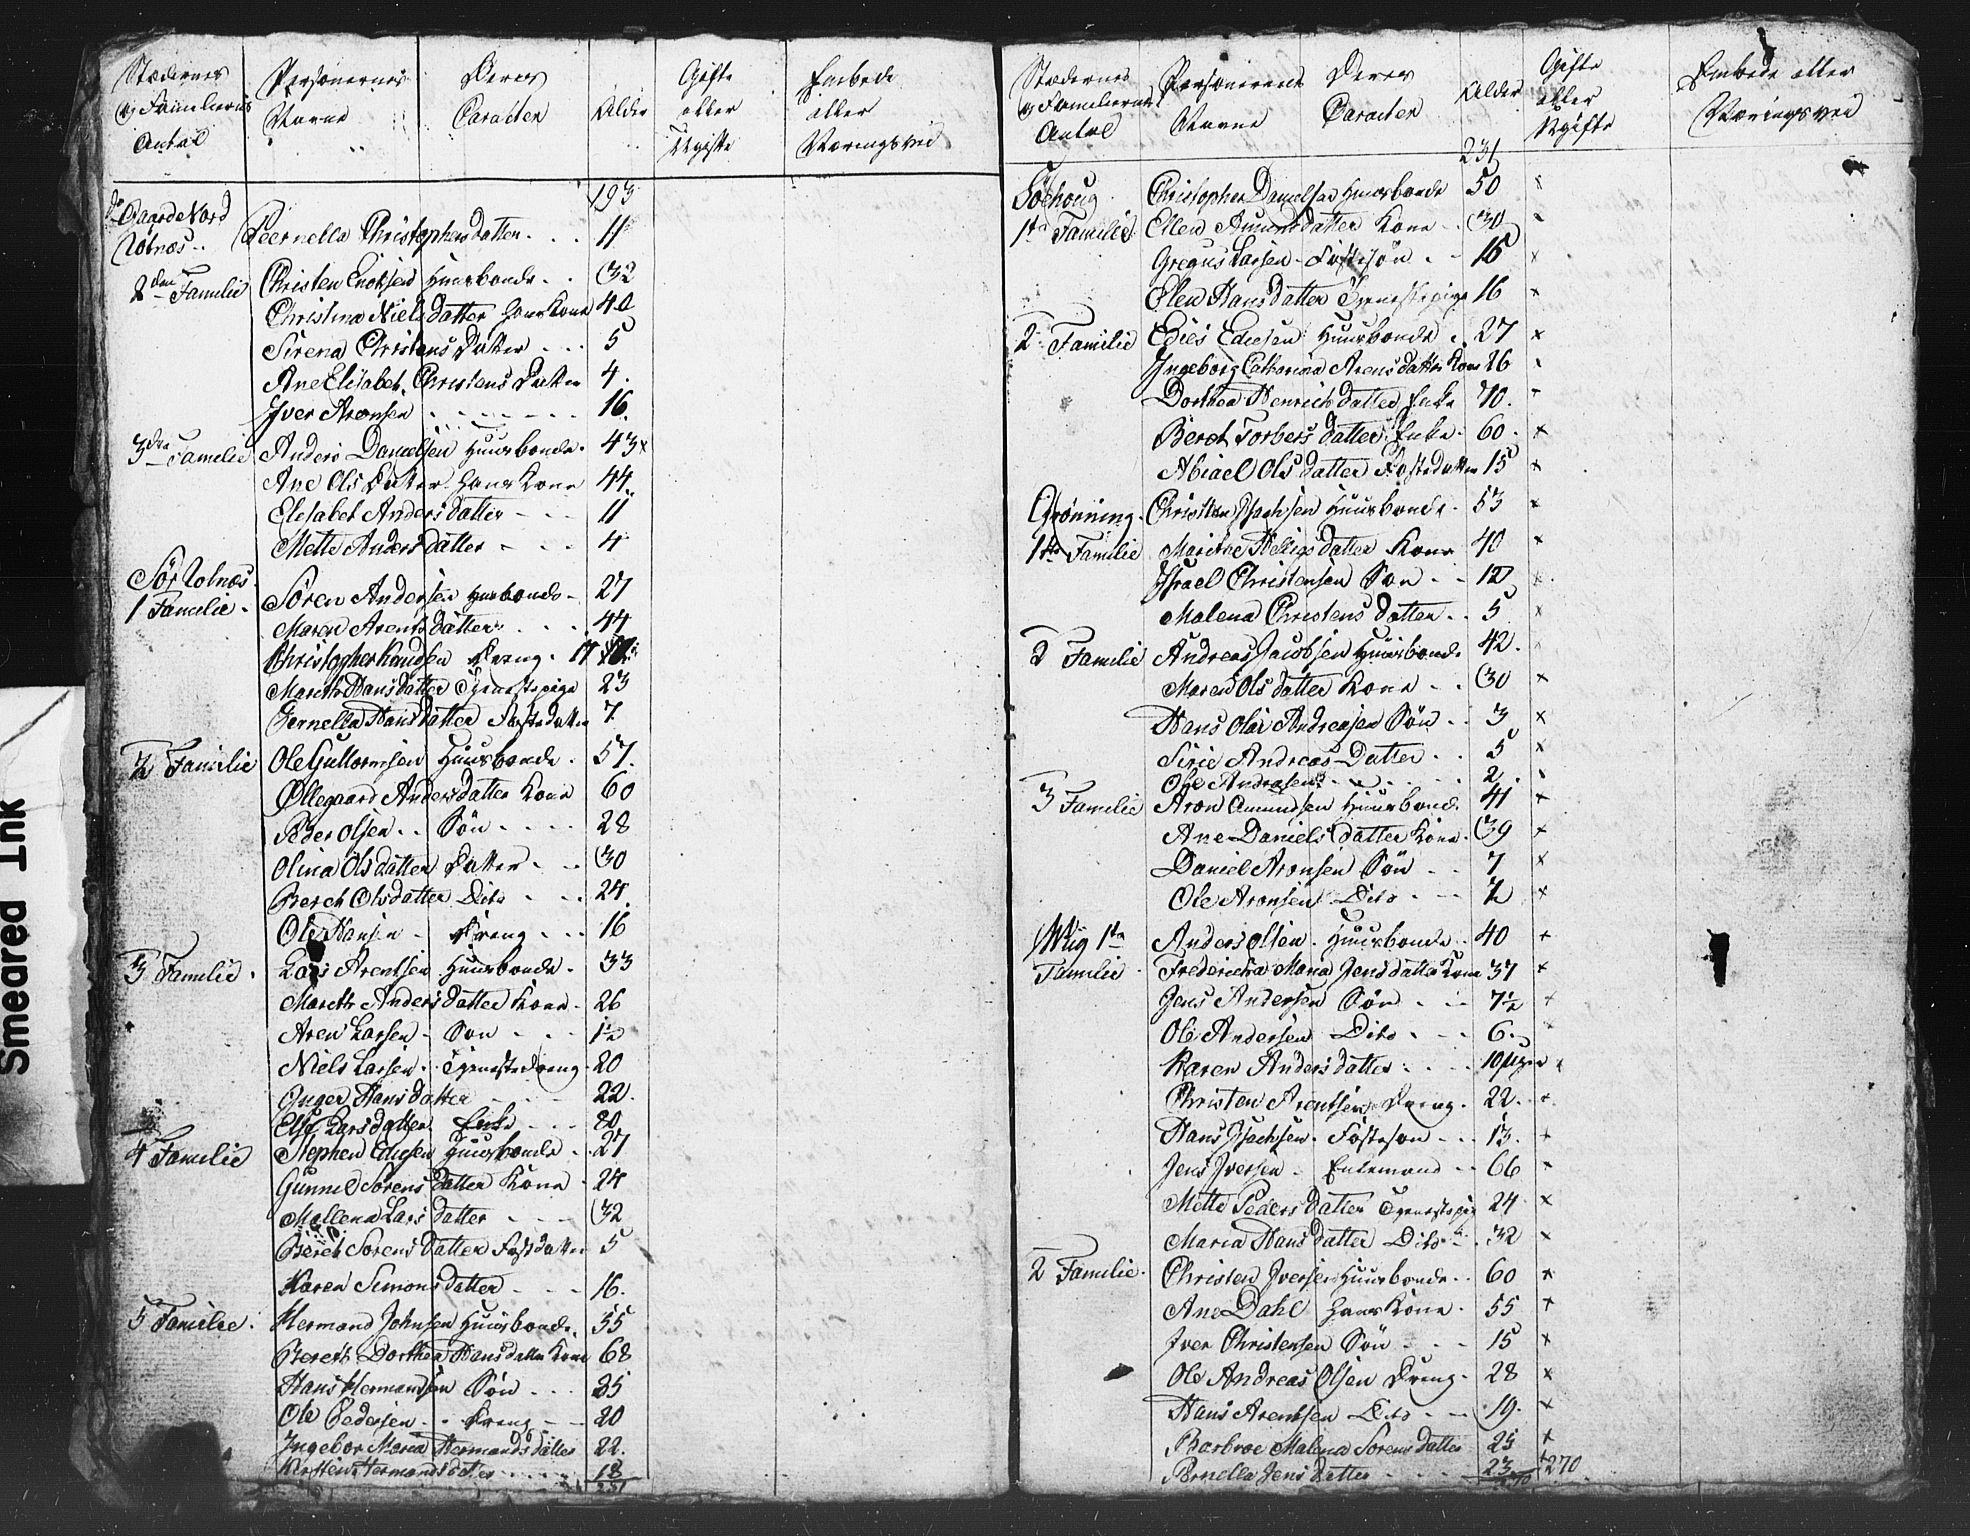 Stædernes og Familiernes Antal | Personernes Navne | Deres Caracter | Alder | Gifte eller Ugifte | Embede eller Næringsvei
193
Gaarde Nord
Peernella Christophersdatter 11
2den Familie Christen Enoksen Huusbonde 32
Christina Nielsdatter hans Kone 40
Sirena Christens Datter 5
Ane Elisabet Christens Datter 4
Iver Aronsen 16
3die Familie Anders Danielsen Huusbonde 43 x
Ane Ols Datter hans Kone 44
Elisabet Andersdatter 11
Mette Andersdatter 4
Sør
1 Familie Sören Andersen Huusbonde 27
Maren Arentsdatter 44
Christopher Knudsen Dreng 17
Mareth Hansdatter Tjenestepige 23
Pernella Hansdatter Fostedatter 7
2 Familie Ole Guttormsen Huusbonde 57
Øllegaard Andersdatter Kone 60
Peder Olsen Sön 28
Olina Olsdatter Datter 30
Bereth Olsdatter Dito 24
Ole Hansen Dreng 16
3 Familie Lars Arentsen Huusbonde 33
Mareth Andersdatter Kone 26
Aren Larsen Søn 1½
Niels Larsen Tjenestedreng 20
Inger Hansdatter 22
Else Larsdatter Enke 80
4 Familie Stephen Ediesen Huusbonde 27
Gunnel Sørensdatter Kone 24
Mallena Larsdatter 32
Bereth Sorensdatter Fostdatter 5
Karen Simonsdatter 16
5 Familie Hermand Johnsen Huusbonde 55
Bereth Dorthea Hansdatter Kone 68
Hans Hermandsen Sön 25
Ole Pedersen Dreng 20
Ingebor Maria Hermandsdatter 22
Kirsten Hermandsdatter 18
231
Stædernes og Familiernes Antal | Personernes Navne | Deres Caracter | Alder | Gifte eller Ugifte | Embede eller Næringsvei
231
Christopher Danielsen Huusbonde 50 x
1te Familie Ellen Amundsdatter Kone 30
Gregus Larsen Fostesøn 15 x
Elen Hansdatter Tjenestepige 16 x
2 Familie Edies Ediesen Huusbonde 27 x
Ingeborg Catharina Arensdatter Kone 26
Dorthea Henrichdatter Enke 70
Bereth Torbersdatter Enke 60 x
Abiael Olsdatter Fostedatter 15 x
Grönning Christian Isachsen Huusbonde 53 x
1te Familie Marithe Hellesdatter Kone 40 x
Israel Christensen Søn 12 x
Malena Christensdatter 5 x
2 Familie Andreas Jacobsen Huusbonde 42
Maren Olsdatter Kone 30 x
Hans Olai Andreasen Sön 3 x
Sirie Andreas Datter 5 x
Ole Andreasen 2
3 Familie Aron Amundsen Huusbond 41 x
Ane Danielsdatter Kone 39 x
Daniel Aronsen Sön 7 x
Ole Aronsen Dito ½ x
Wiig 1te Anders Olsen Huusbonde 40 x
Familie Fredericka Maria Jensdatter Kone 37 x
Jens Andersen Sön 7½ x
Ole Andersen Dito 6 x
Karen Andersdatter 10 Uger x
Christen Arentsen Dreng 22 x
Hans Isachsen Fosteson 13 x
Jens Iversen Enkemand 66 x
Mette Pedersdatter Tjenestepig 24 x
Maria Hansdatter Dito 32 x
2 Familie Christen Iversen Huusbonde 60 x
Ane Dahl hans Kone 55 x
Iver Christensen Sön 15 x
Ole Andreas Olsen Dreng 28 x
Hans Arentsen Dito 19 x
Barbroe Malena Sorensdatter 25 x
Pernella Jensdatter 23 x 270
270
Smeared Ink